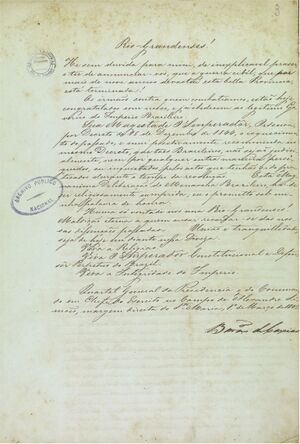 3
Rio-Grandenses!
He sem duvida para mim, de inexplicavel prazer
o ter de annunciar-vos, que a guerra civil, que por
mais de nove annos devastou esta bella Provincia,
está terminada!
Os irmãos contra quem combatiamos, estão hoje
congratulados comnosco, e já obedecem ao legitimo Go-
verno do Imperio Brasileiro.
Sua Magestade O Imperador, Ordenou
por Decreto de 18 de Dezembro de 1844, o esquecimen-
to do passado, e mui positivamente recommenda no
mesmo Decreto, que taes Brasileiros, não sejão judici-
almente, nem por qualquer outra maneira, perse-
guidos, ou inquietados pelos actos que tenhão sido pra-
ticados durante o tempo da revolução. Esta Ma-
gnanima Deliberação do Monarcha Brasileiro, ha de
ser religiosamente cumprida, eu o prometto sob mi-
nha palavra de honra.
Huma só vontade nos una Rio-Grandenses!
Maldição eterna a quem se recordar das nos-
sas dissenções passadas. União e tranquillidade
seja de hoje em diante nossa divisa.
Viva a Religião!
Viva O Imperador Constitucional e Defen-
sor Perpetuo do Brazil.
Viva a Integridade do Imperio.
Quartel General da Presidencia, e do Comman-
do em Chefe do Exercito no Campo de Alexandre Si-
mões, margem direita de Sta Maria, 1º de Março de 1845.
Barão de Caxias
ARCHIVO PUBLICO
NACIONAL